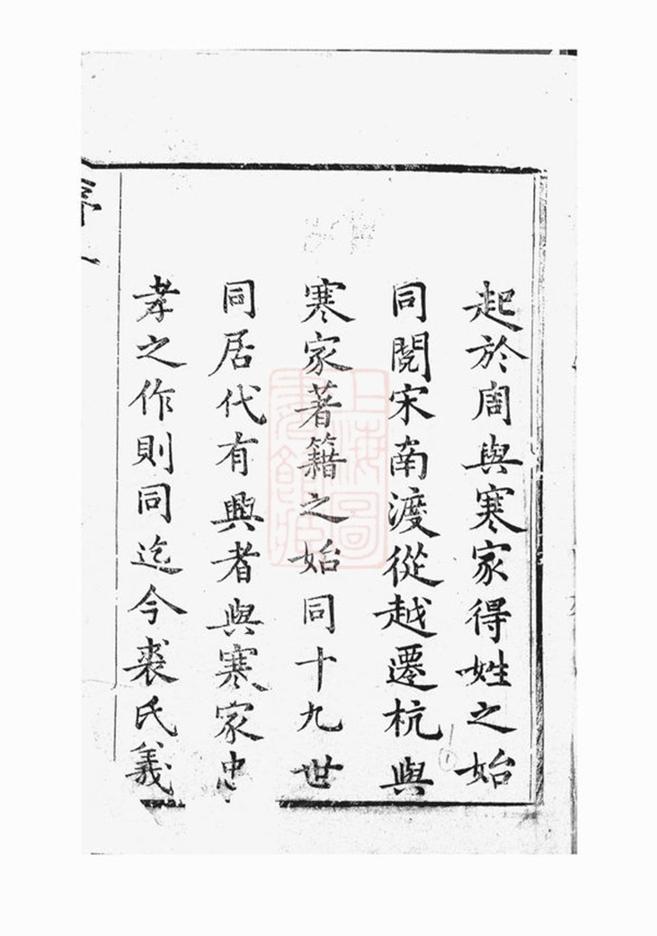 起於周與寒家得姓之始
同閱宋南渡從越遷杭與
寒家著籍之始同十九世
同居代有興者與寒家忠
孝之作則同迄今裘氏義
上海圖書館藏